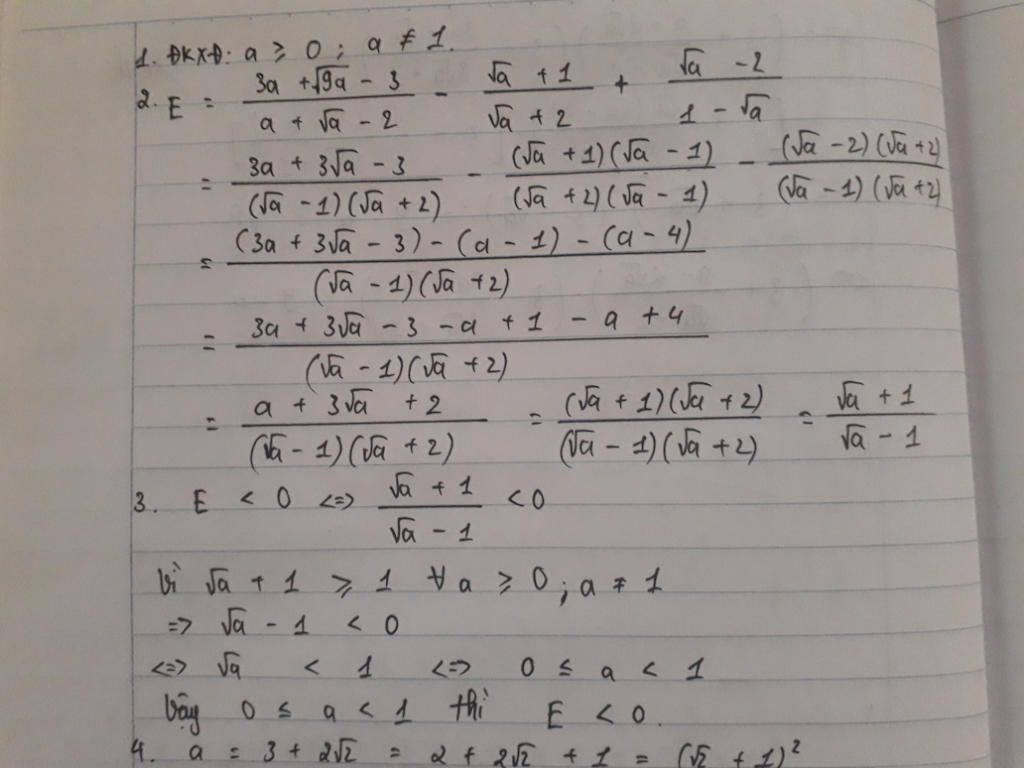 1. ĐKXĐ: a ≥ 0 ; a ≠ 1.
2. E = (3a + √9a - 3)/(a + √a - 2) - (√a + 1)/(√a + 2) + (√a - 2)/(1 - √a)
= (3a + 3√a - 3)/((√a - 1)(√a + 2)) - ((√a + 1)(√a - 1))/((√a + 2)(√a - 1)) - ((√a - 2)(√a + 2))/((√a - 1)(√a + 2))
= ((3a + 3√a - 3) - (a - 1) - (a - 4))/((√a - 1)(√a + 2))
= (3a + 3√a - 3 - a + 1 - a + 4)/((√a - 1)(√a + 2))
= (a + 3√a + 2)/((√a - 1)(√a + 2)) = ((√a + 1)(√a + 2))/((√a - 1)(√a + 2)) = (√a + 1)/(√a - 1)
3. E < 0 <=> (√a + 1)/(√a - 1) < 0
Vì √a + 1 ≥ 1 ∀ a ≥ 0 ; a ≠ 1
=> √a - 1 < 0
<=> √a < 1 <=> 0 ≤ a < 1
Vậy 0 ≤ a < 1 thì E < 0.
4. a = 3 + 2√2 = 2 + 2√2 + 1 = (√2 + 1)²